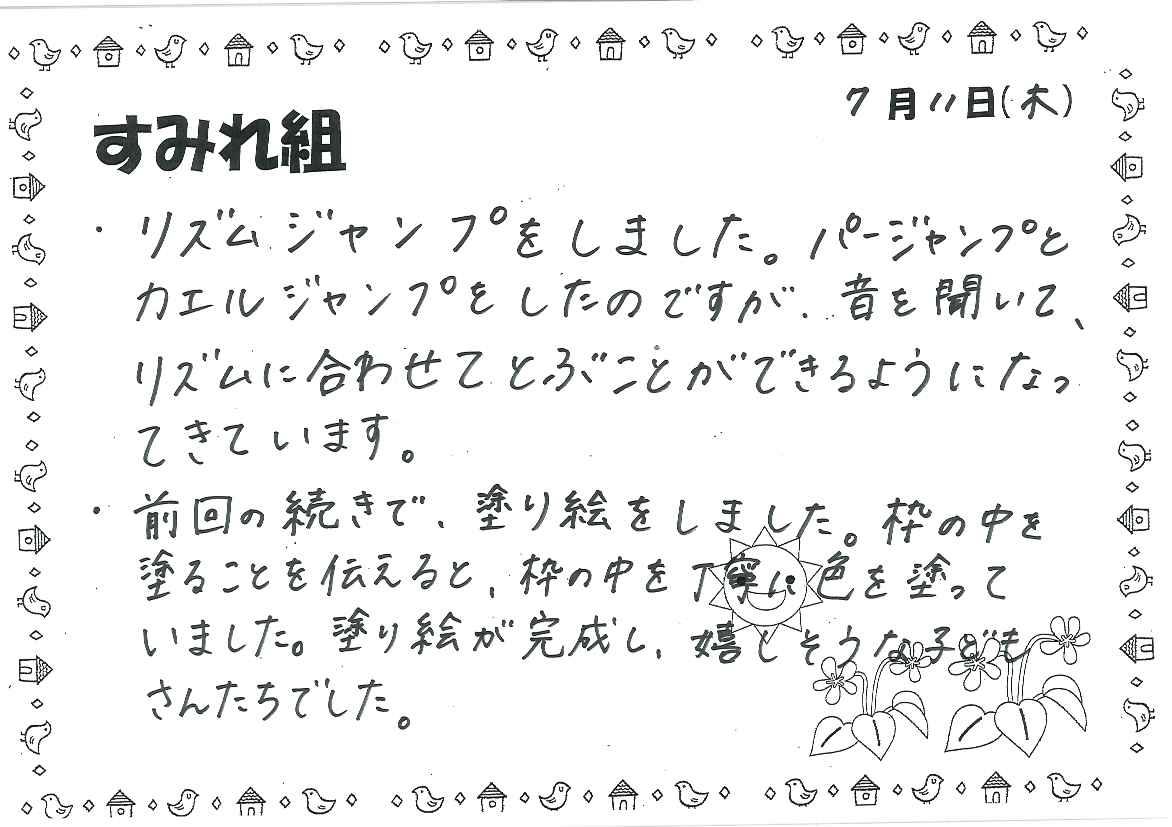 7月11日(木)
すみれ組
・リズムジャンプをしました。パージャンプと
カエルジャンプをしたのですが、音を聞いて、
リズムに合わせてとぶことができるようになっ
てきています。
・前回の続きで、塗り絵をしました。枠の中を
塗ることを伝えると、枠の中を丁寧に色を塗って
いました。塗り絵が完成し、嬉しそうな子ども
さんたちでした。